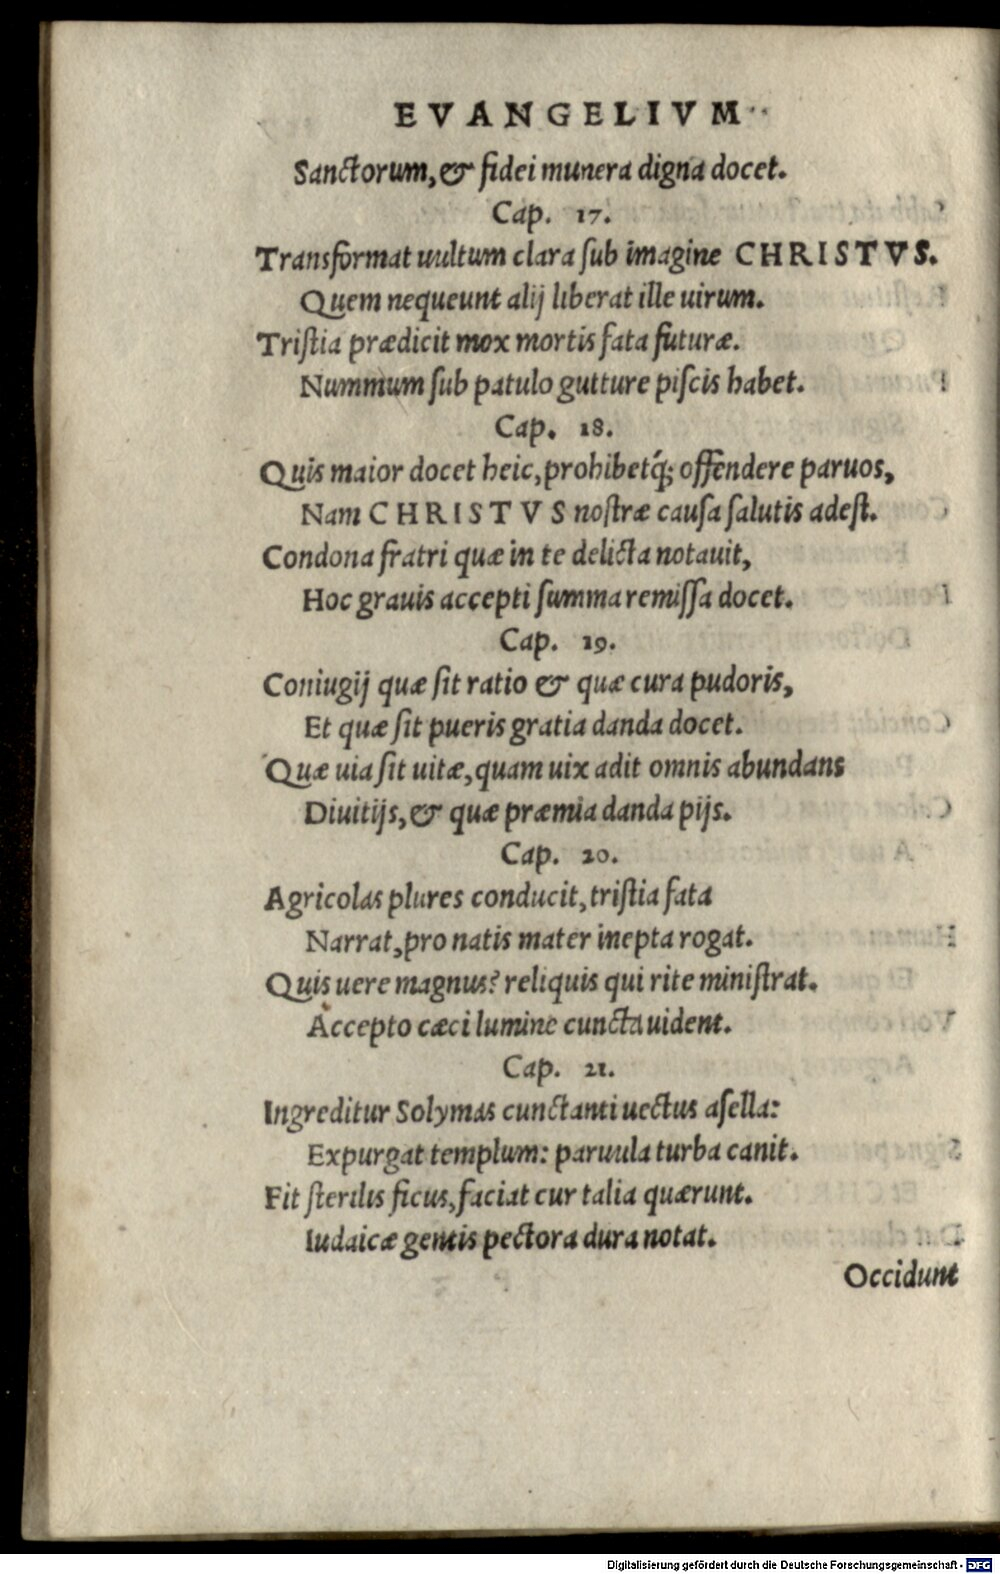 EVANGELIVM
Sanctorum, & fidei munera digna docet.
Cap. 17.
Transformat uultum clara sub imagine CHRISTVS.
Quem nequeunt alij liberat ille uirum.
Tristia prædicit mox mortis fata futuræ.
Nummum sub patulo gutture piscis habet.
Cap. 18.
Quis maior docet heic, prohibetq́; offendere paruos,
Nam CHRISTVS nostræ causa salutis adest.
Condona fratri quæ in te delicta notauit,
Hoc grauis accepti summa remissa docet.
Cap. 19.
Coniugij quæ sit ratio & quæ cura pudoris,
Et quæ sit pueris gratia danda docet.
Quæ uia sit uitæ, quam uix adit omnis abundans
Diuitijs, & quæ præmia danda pijs.
Cap. 20.
Agricolas plures conducit, tristia fata
Narrat, pro natis mater inepta rogat.
Quis uere magnus? reliquis qui rite ministrat.
Accepto cæci lumine cuncta uident.
Cap. 21.
Ingreditur Solymas cunctanti uectus asella:
Expurgat templum: paruula turba canit.
Fit sterilis ficus, faciat cur talia quærunt.
Iudaicæ gentis pectora dura notat.
Occidunt
Digitalisierung gefördert durch die Deutsche Forschungsgemeinschaft - DFG